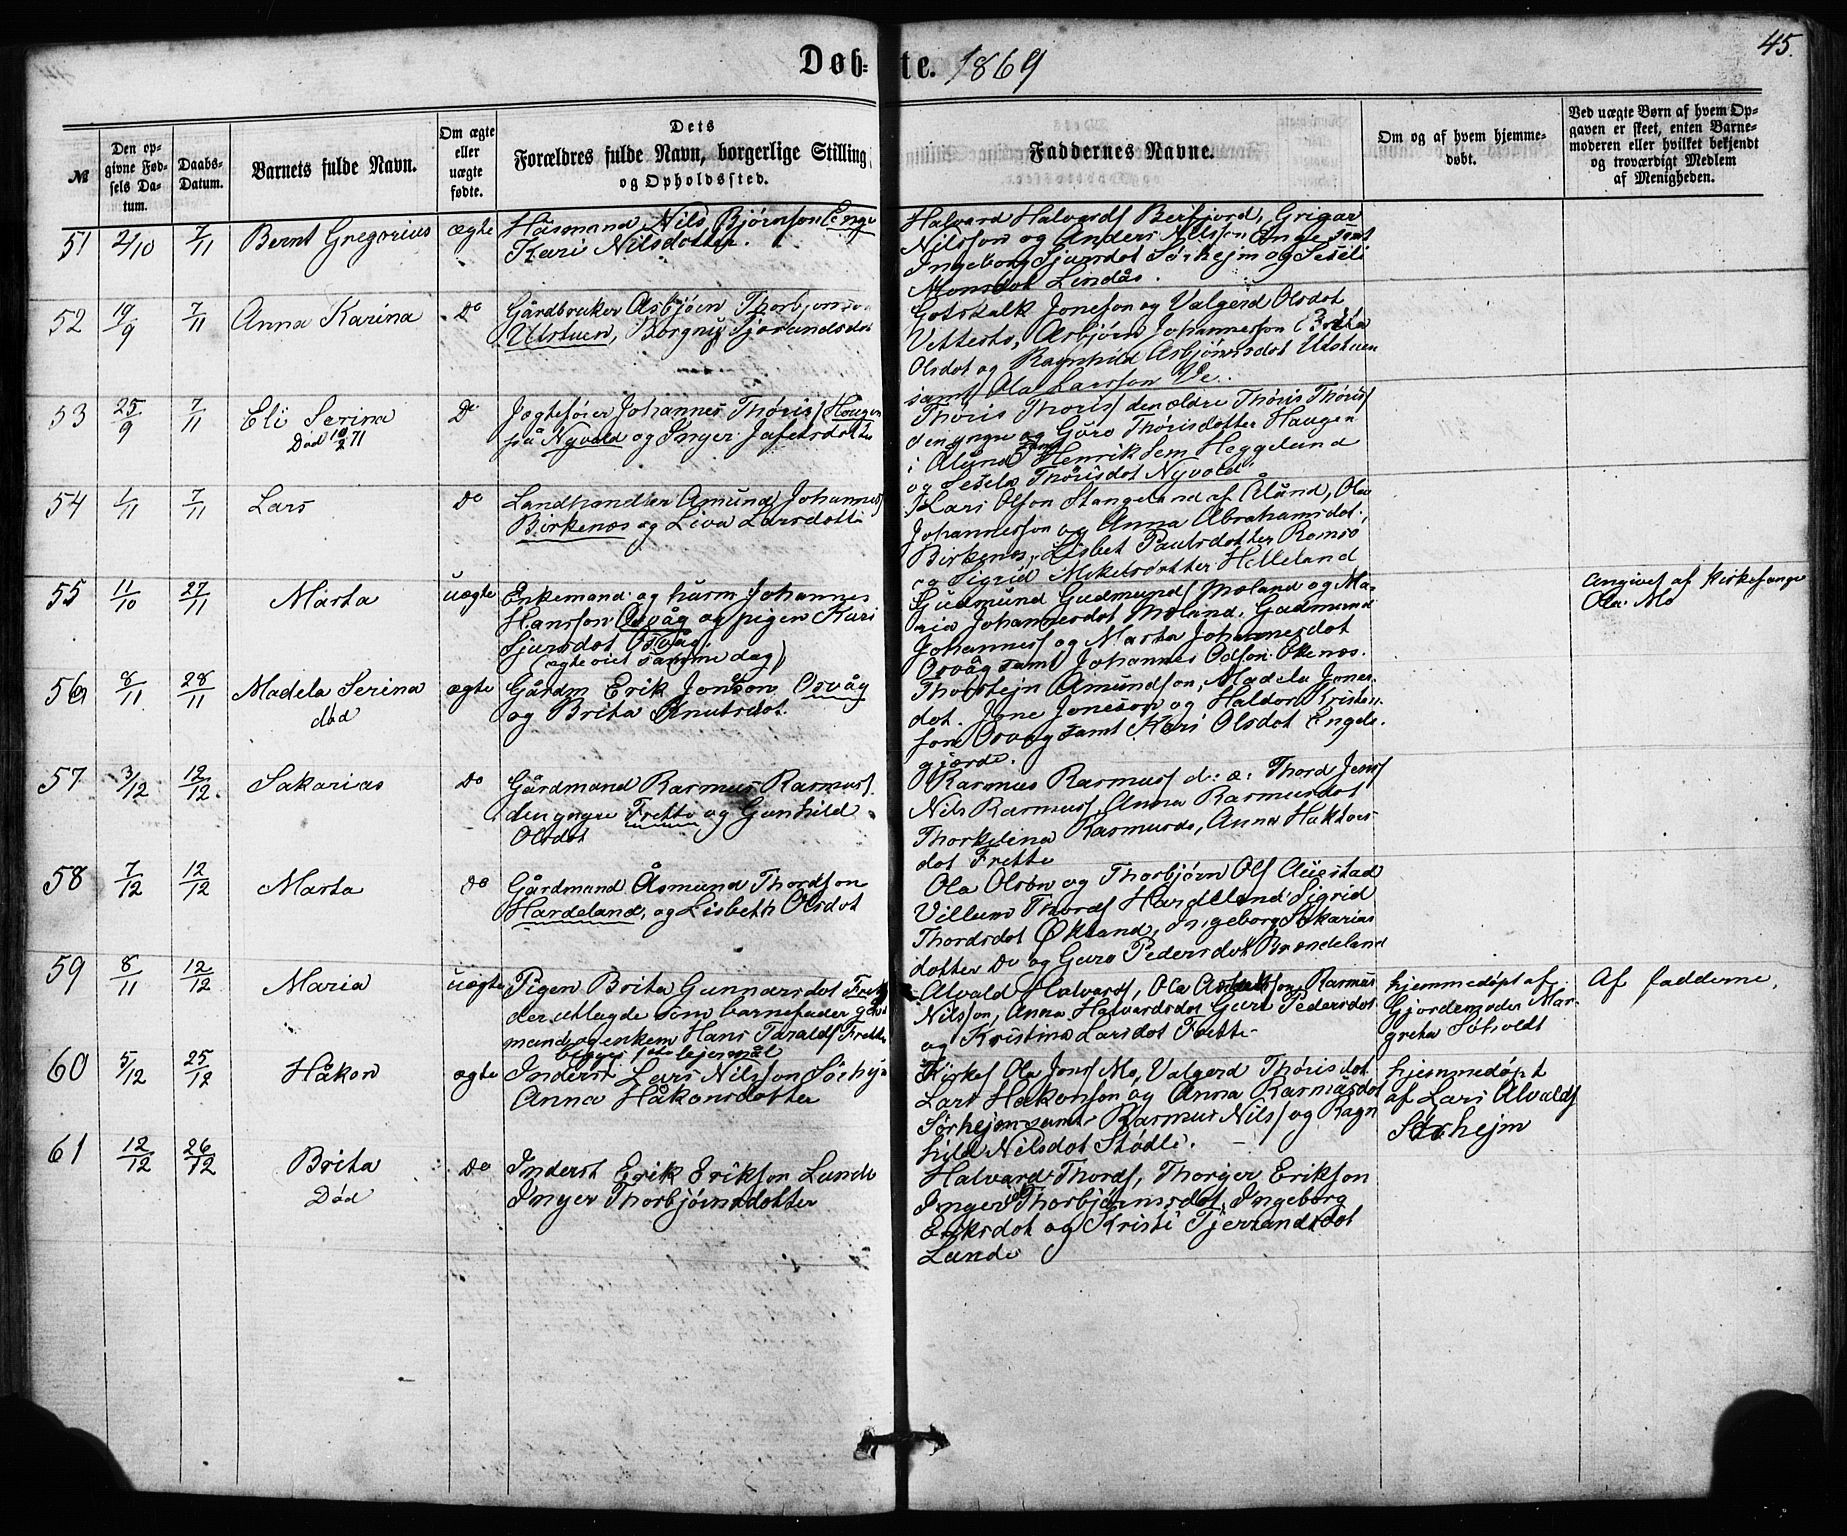 Døb-te. 1869
45.
№
Den opgivne Fødsels Datum.
Daabs-Datum.
Barnets fulde Navn.
Om ægte eller uægte fødte.
Dets Forældres fulde Navn, borgerlige Stilling og Opholdssted.
Faddernes Navne.
Om og af hvem hjemmedøbt.
Ved uægte Børn af hvem Opgaven er skeet, enten Barnemoderen eller hvilket bekjendt og troværdigt Medlem af Menigheden.
51 2/10 7/11 Bernt Gregorius ægte
Husmand Nils Bjørnson Enge
Kari Nilsdotter.
Halvard Halvards Berfjord, Grigar
Nilsson og Anders Nilsson Enge samt
Ingeborg Sjursdot Sørhejm og Seseli
Monsdot Lindås.
52 19/9 7/11 Anna Karina Do
Gårdbruker Asbjøen Thorbjørnson
Utstuen, Borgny Tjerandsdot
Gotskalk Joneson og Valgerd Olsdot
Vettestø, Asbjørn Johannesson Brita
Olsdot og Ragnhild Asbjørnsdot Utstuen
samt Ola Larsson Ve.
53 25/9 7/11 Eli Serina Do
Død 10/2 71
Jægtefører Johannes Thøris Haugen
på Nyvold og Inger Jafetsdotter
Thøris Thøris den ældre Thøris Thøris
den yngre og Guro Thørisdotter Haugen
i Ølund samt Henrik Sem Heggelund
og Sesela Thørisdot Nyvold.
54 1/11 7/11 Lars Do
Landhandler Amund Johannes
Birkenæs og Liva Larsdotter
Lars Olson Stangeland af Ølund, Ola
Johannesson og Anna Abrahamsdot.
Birkenes, Lisbet Paulsdotter Romsø
og Sigrid Mikelsdotter Helleland
55 11/10 27/11 Marta uægte
Enkemand og husm Johannes
Hansson Osvåg og pigen Kari
Sjursdot Osvåg.
(ægteviet samme dag)
Gudmund Gudmunds Moland og Maria
Johannesdot Moland. Gudmund
Johannes og Marta Johannesdot
Osvåg samt Johannes Odson Økenæs.
Angivet af Kirkesanger
Ola Mo
56 8/11 28/11 Madela Serina ægte
død
Gårdm Erik Jonson Osvåg
og Brita Knutsdot.
Thorstejn Amundson, Madela Jonesdot.
Jone Joneson og Haldor Kristenson
Osvåg samt Kari Olsdot Engelsgjerde.
57 3/12 12/12 Sakarias Do
Gårdmand Rasmus Rasmus
den yngre Frette og Gunhild
Olsdot
Rasmus Rasmus d: æ: Thord Jens
Nils Rasmus, Anna Rasmusdot
Thorkelina Rasmusds, Anna Haktorsdot
Frette
58 7/12 12/12 Marta Do
Gårdmand Åsmund Thordson
Hardeland, og Lisbeth Olsdot
Ola Olson og Thorbjørn Ols Austad
Villum Thords Hardeland Sigrid
Thordsdot Økland, Ingeborg Sakariasdotter
Do og Guro Pedersdot Brondeland
59 8/11 12/12 Maria uægte
Pigen Brita Gunnarsdot Frette
der utlagde som barnefader gårdmand
og enkem Hans Taralds Frette
begges 1ste lejermål
Alvald Halvards, Ola Rasmus
Nilsson, Anna Halvardsdot Guro Pedersdot
og Kristina Larsdot Frette
hjemmedøpt af
Gjordemoder Margreta
Søholdt
Af fadderne,
60 5/12 25/12 Håkon ægte
Inderst Lars Nilsson Sørhejm
Anna Håkonsdotter
Kirkes Ola Jons Mo, Valgerd Thørisdot
Lars Håkonson og Anna Rasmusdot
Sørhejm samt Rasmus Nils og Ragnhild
Nilsdot Stødle.
hjemmedøpt
af Lars Alvalds
Sørhejm
61 12/12 26/12 Brita Do
Død
Inderst Erik Erikson Lunde
Inger Thorbjørnsdotter
Halvard Thords, Thorger Erikson
Inger Thorbjørnsdot, Ingeborg
Eriksdot og Kristi Tjerrandsdot
Lunde